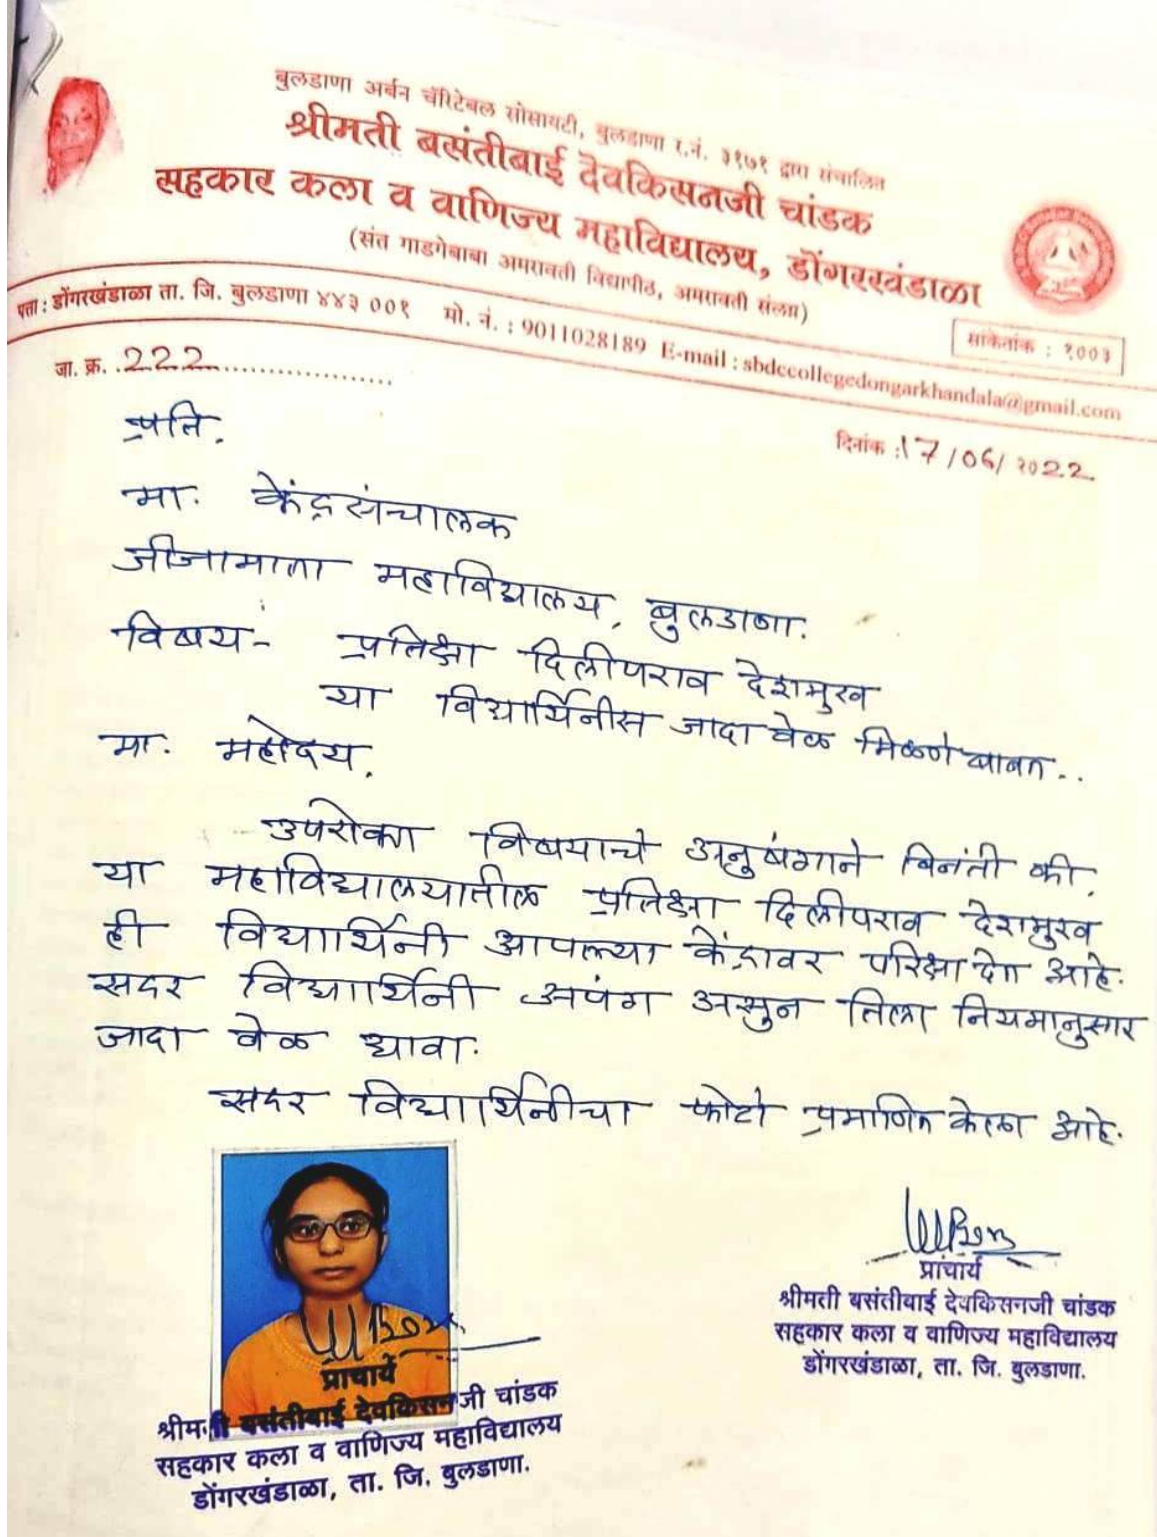 बुलडाणा अर्बन चॅरिटेबल सोसायटी, बुलडाणा र.नं. ३१७१ द्वारा संचालित
श्रीमती बसंतीबाई देवकिसनजी चांडक
सहकार कला व वाणिज्य महाविद्यालय, डोंगरखंडाळा
(संत गाडगेबाबा अमरावती विद्यापीठ, अमरावती संलग्न)
पत्ता : डोंगरखंडाळा ता. जि. बुलडाणा ४४३ ००१ मो. नं. : 9011028189 E-mail : sbdccollegedongarkhandala@gmail.com
सांकेतांक : १००३
जा. क्र. 222
दिनांक : 17/06/2022
प्रति,
मा. केंद्रसंचालक
जीजामाता महाविद्यालय, बुलडाणा.
विषय - प्रतिक्षा दिलीपराव देशमुख
या विद्यार्थिनीस जादा वेळ मिळणे बाबत..
मा. महोदय,
उपरोक्त विषयाचे अनुषंगाने विनंती की,
या महाविद्यालयातील प्रतिक्षा दिलीपराव देशमुख
ही विद्यार्थिनी आपल्या केंद्रावर परिक्षा देत आहे.
सदर विद्यार्थिनी अपंग असुन तिला नियमानुसार
जादा वेळ द्यावा.
सदर विद्यार्थिनीचा फोटो प्रमाणित केला आहे.
प्राचार्य
श्रीमती बसंतीबाई देवकिसनजी चांडक
सहकार कला व वाणिज्य महाविद्यालय
डोंगरखंडाळा, ता. जि. बुलडाणा.
प्राचार्य
श्रीमती बसंतीबाई देवकिसनजी चांडक
सहकार कला व वाणिज्य महाविद्यालय
डोंगरखंडाळा, ता. जि. बुलडाणा.